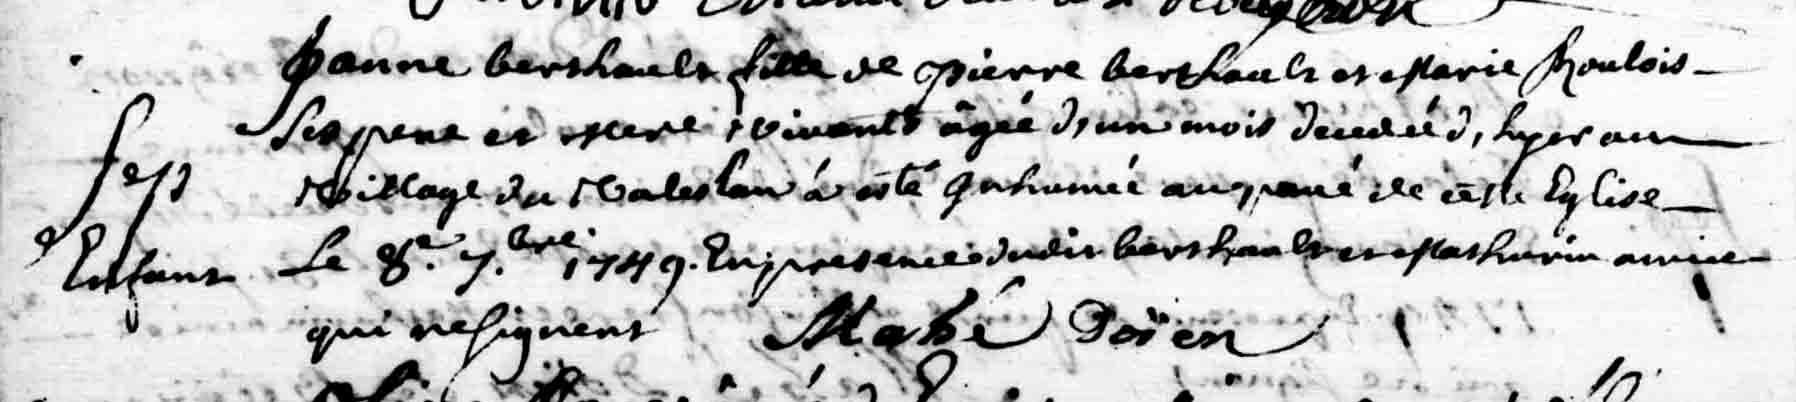 Jeanne berthault fille de pierre berthault et Marie Roulois
Ses pere et Mere vivants âgée d,un mois decedée d,hyer au
Sep
village du Valeslan á esté Inhumée au pavé de cette Eglise
Enfant
Le 8.e 7.bre 1749. En presence dudit berthault et Mathurin
qui ne signent Mahé Doïen